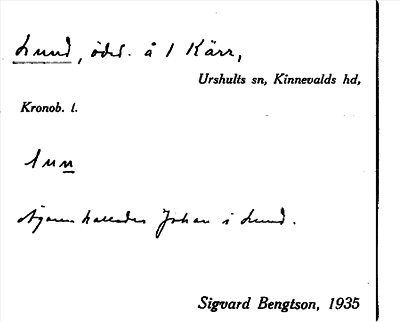 Lund, ödel. å 1 Kärr,
Urshults sn, Kinnevalds hd,
Kronob. l.
lun
Ägaren kallades Johan i Lund.
Sigvard Bengtson, 1935